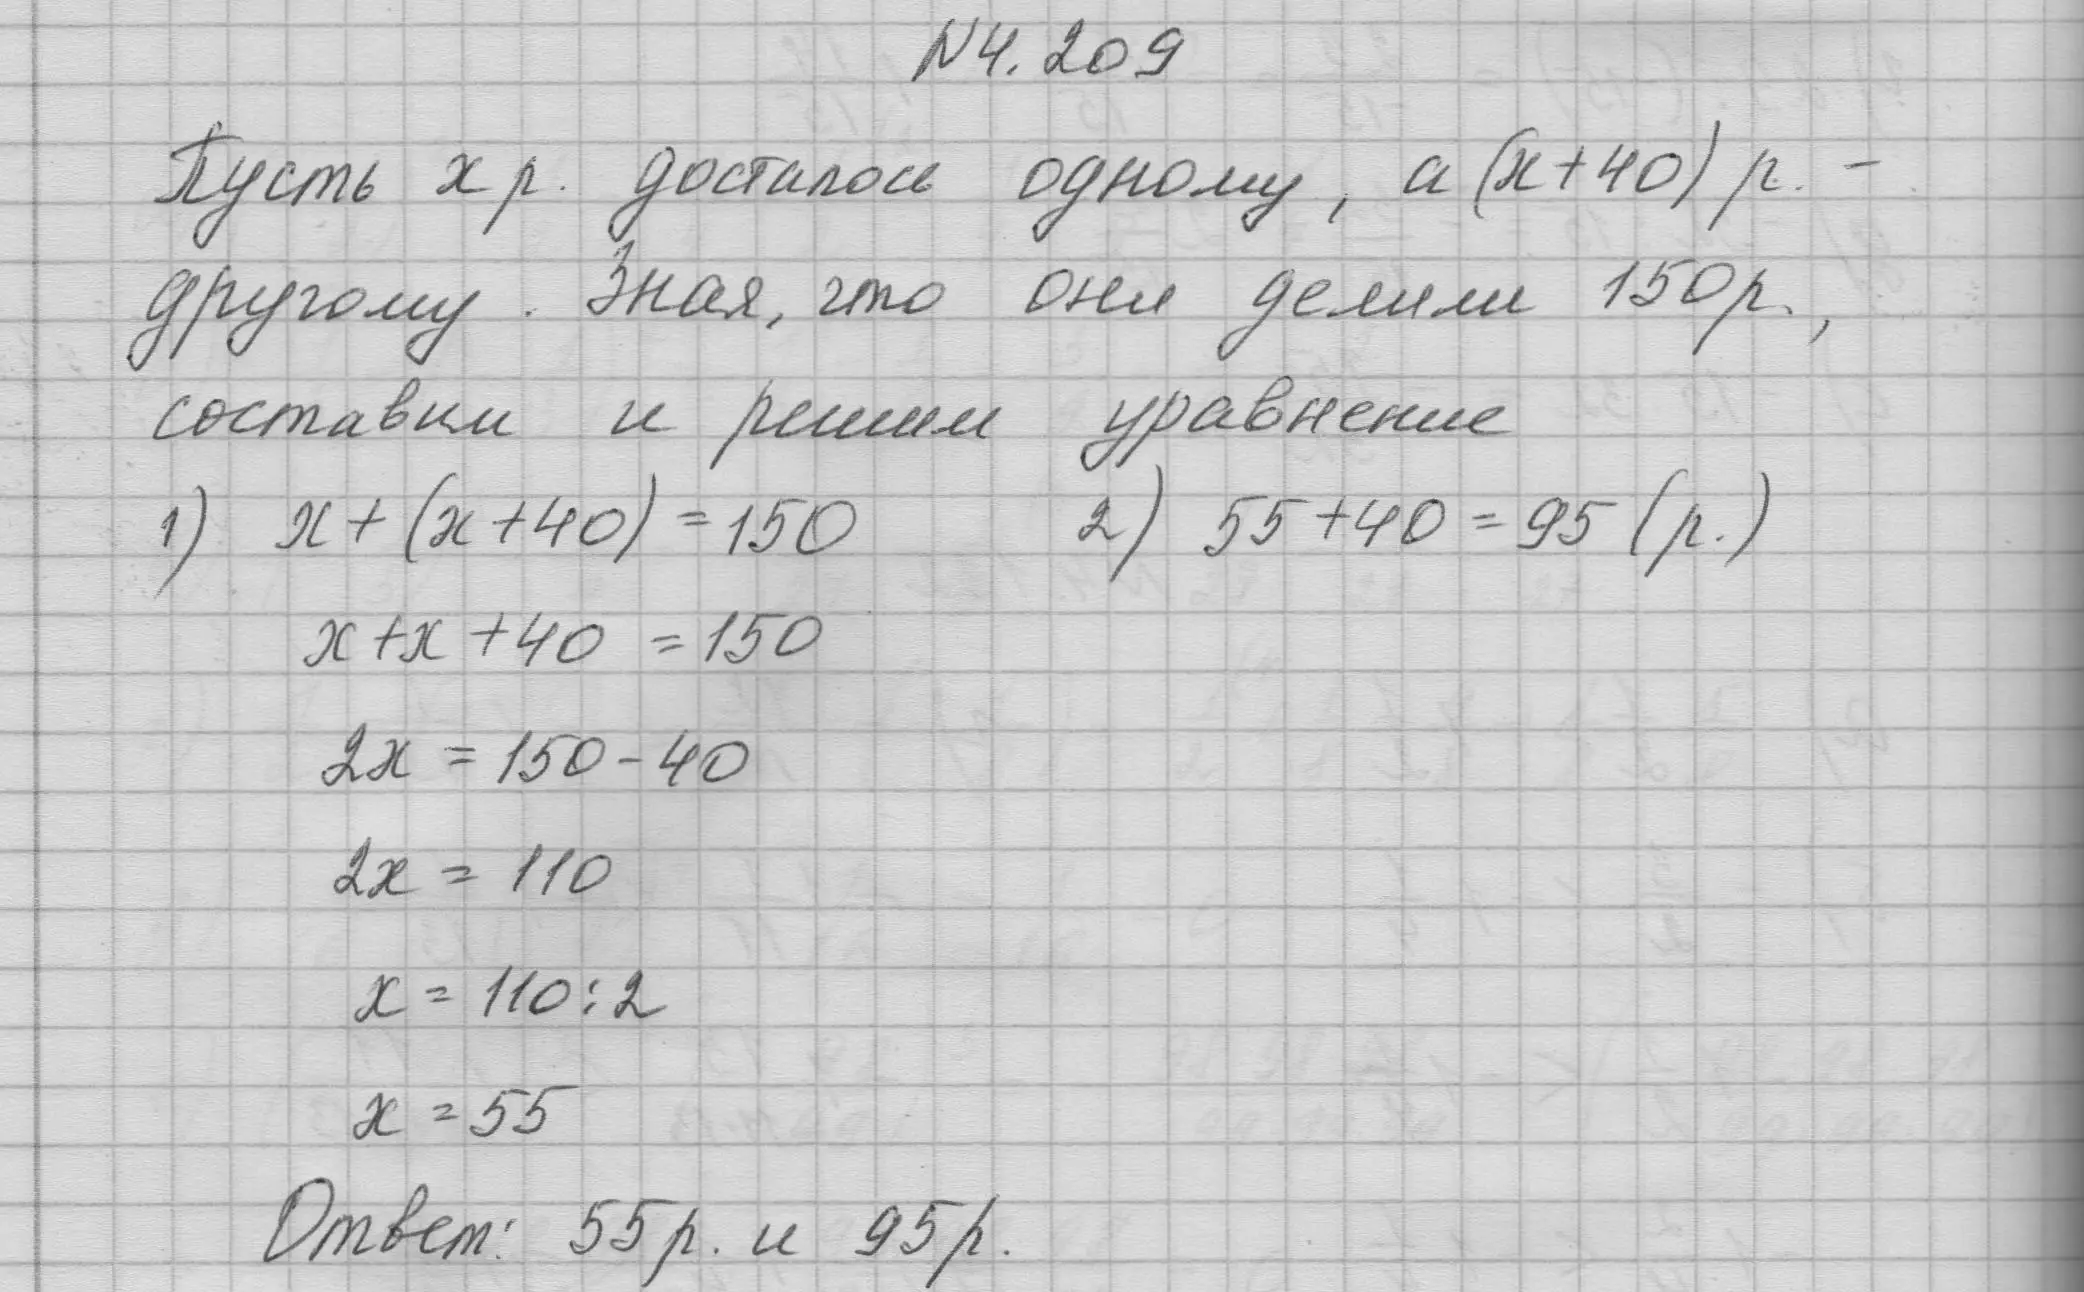 N4.209
Пусть x р. досталось одному, а (x+40) р. –
другому. Зная, что они делили 150р.,
составим и решим уравнение
1) x+(x+40)=150 2) 55+40=95(р.)
x+x+40=150
2x=150-40
2x=110
x=110:2
x=55
Ответ: 55р. и 95р.